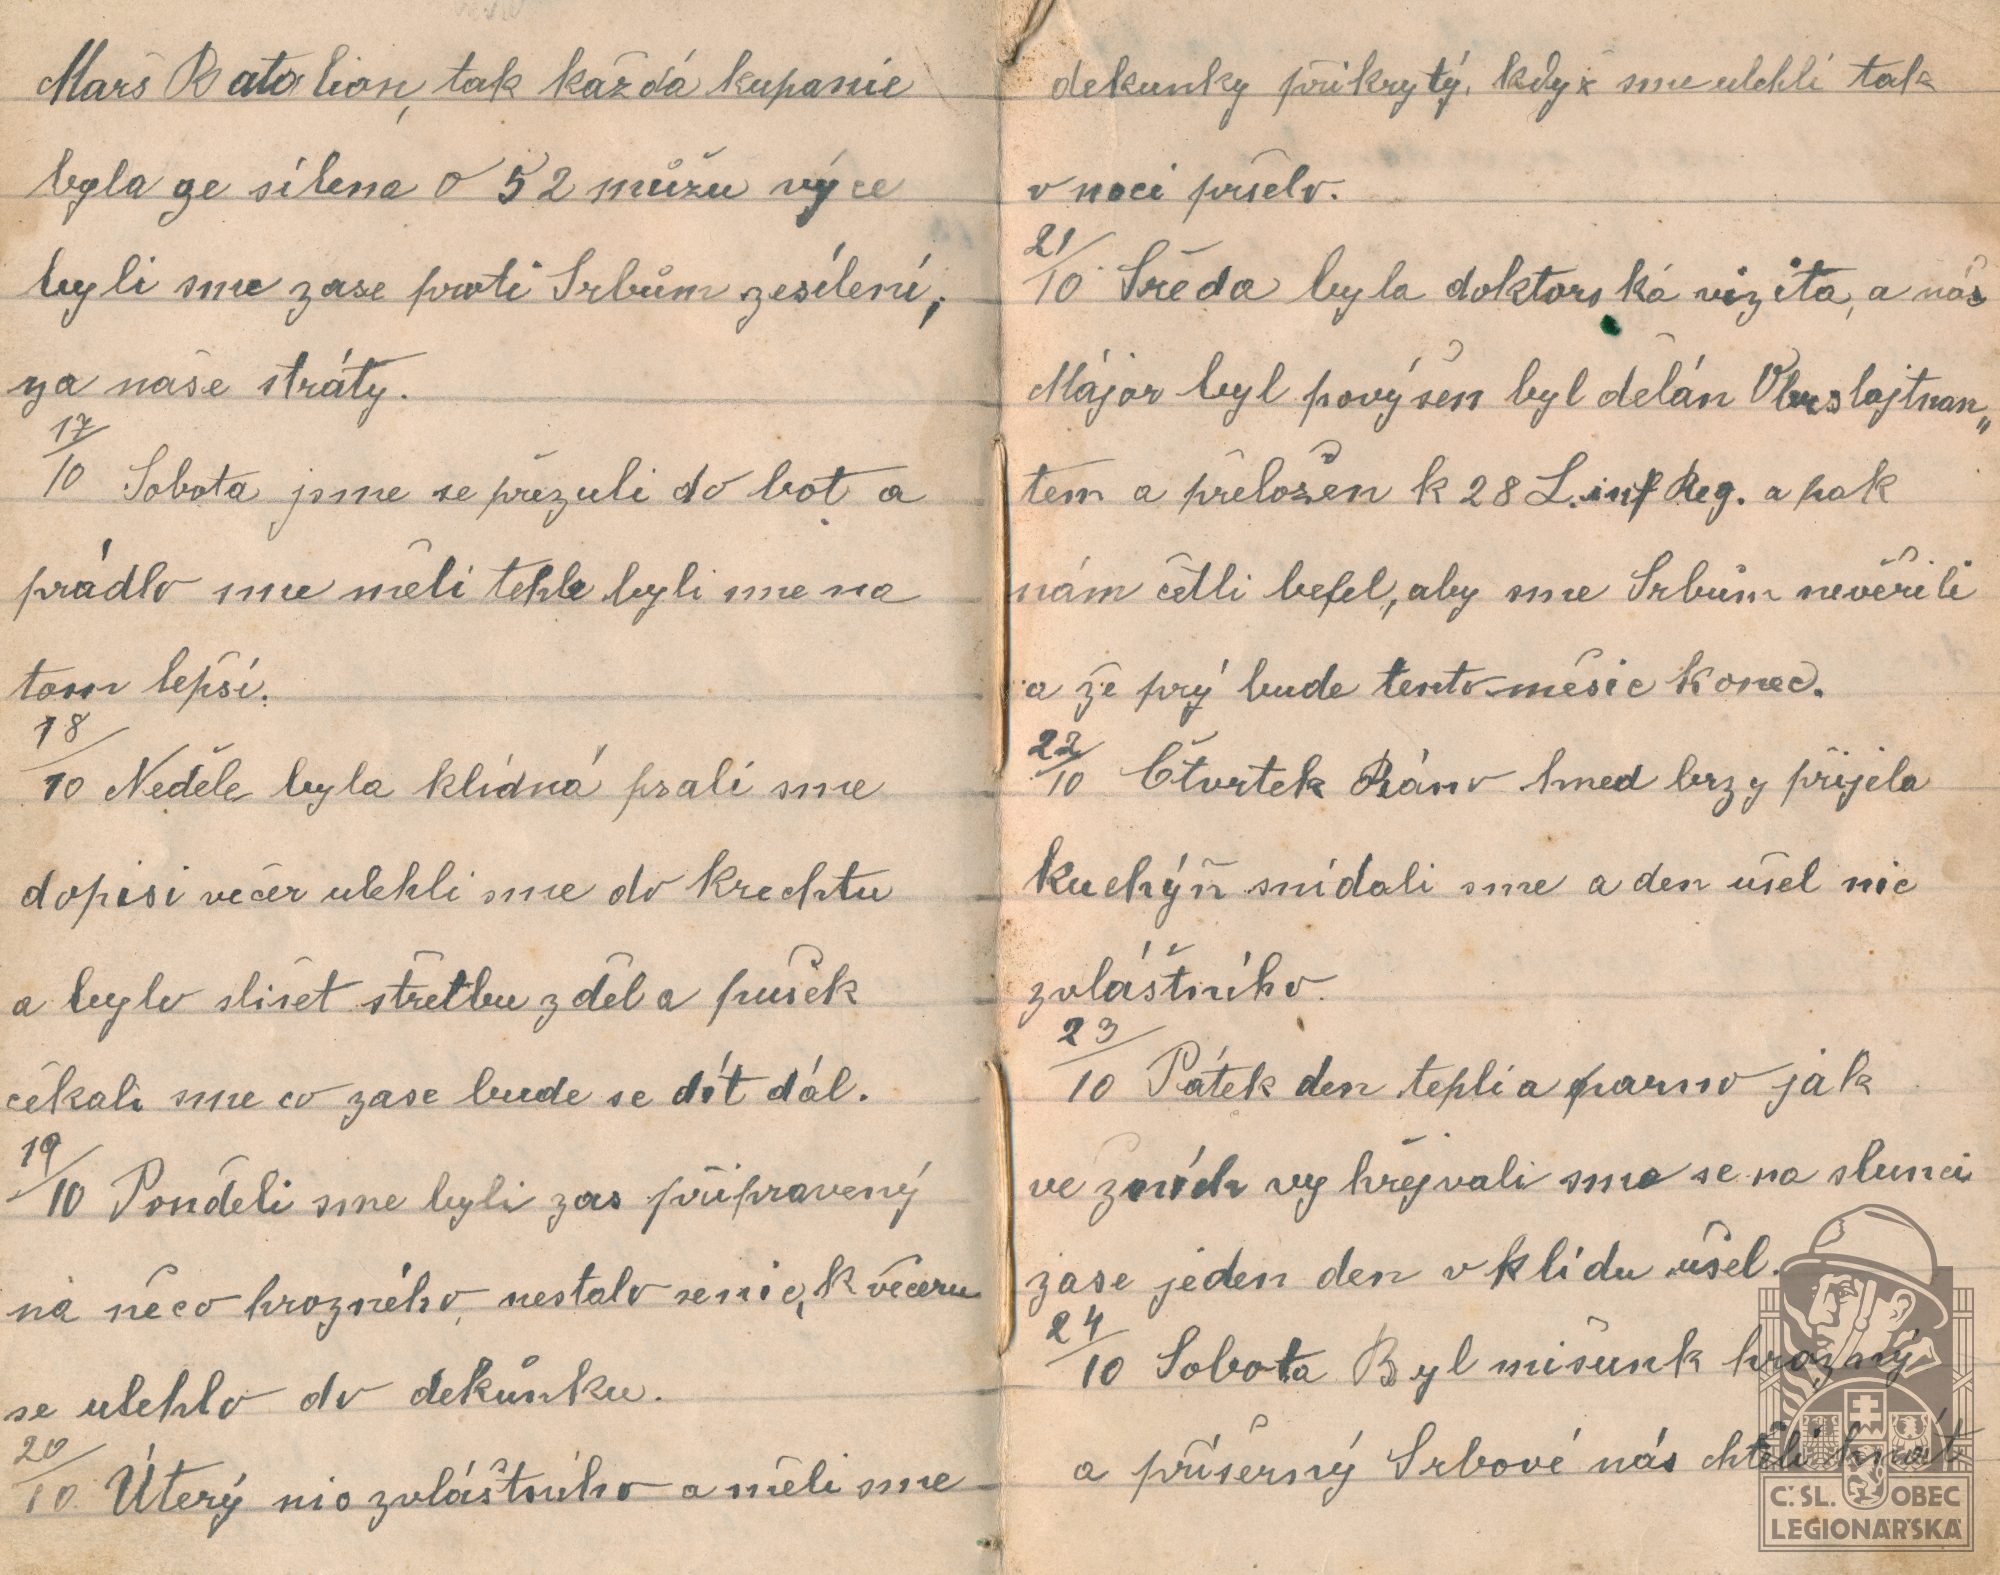 Marš Batalion, tak každá kupanie
byla ge sílena o 52 můžu výce
byli sme zase proti Srbům zesílení,
za naše stráty.
17/10 Sobota jsme se přezuli do bot a
prádlo sme měli tehle byli sme na
tom lepší.
18/10 Neděle byla klidná psali sme
dopisi večer ulehli sme do krechtu
a bylo slišet střelbu z děl a pušek
čekali sme co zase bude se dít dál.
19/10 Pondělí sme byli zas připravený
na něco hrozného, nestalo se nic, k večeru
se ulehlo do dekůnku.
20/10 Úterý nic zvláštního a měli sme
dekunky přikrytý, když sme ulehli tak
v noci pršelo.
21/10 Středa byla doktorská vizita, a náš
Májor byl povýšen byl dělán Oberslajtnan„
tem a přeložen k 28 L. inf Reg. a pak
nám četli befel, aby sme Srbům nevěřili
a že prý bude tento měsíc konec.
22/10 Čtvrtek Ráno hned brzy přijela
kuchýň snídali sme a den ušel nic
zvláštního.
23/10 Pátek den teplí a parno jak
ve žních vyhřejvali sme se na slunci
zase jeden den v klidu ušel.
24/10 Sobota Byl mišunk hrozný
a příšerný Srbové nás chtěli hnát
Č.SL. OBEC
LEGIONÁŘSKÁ